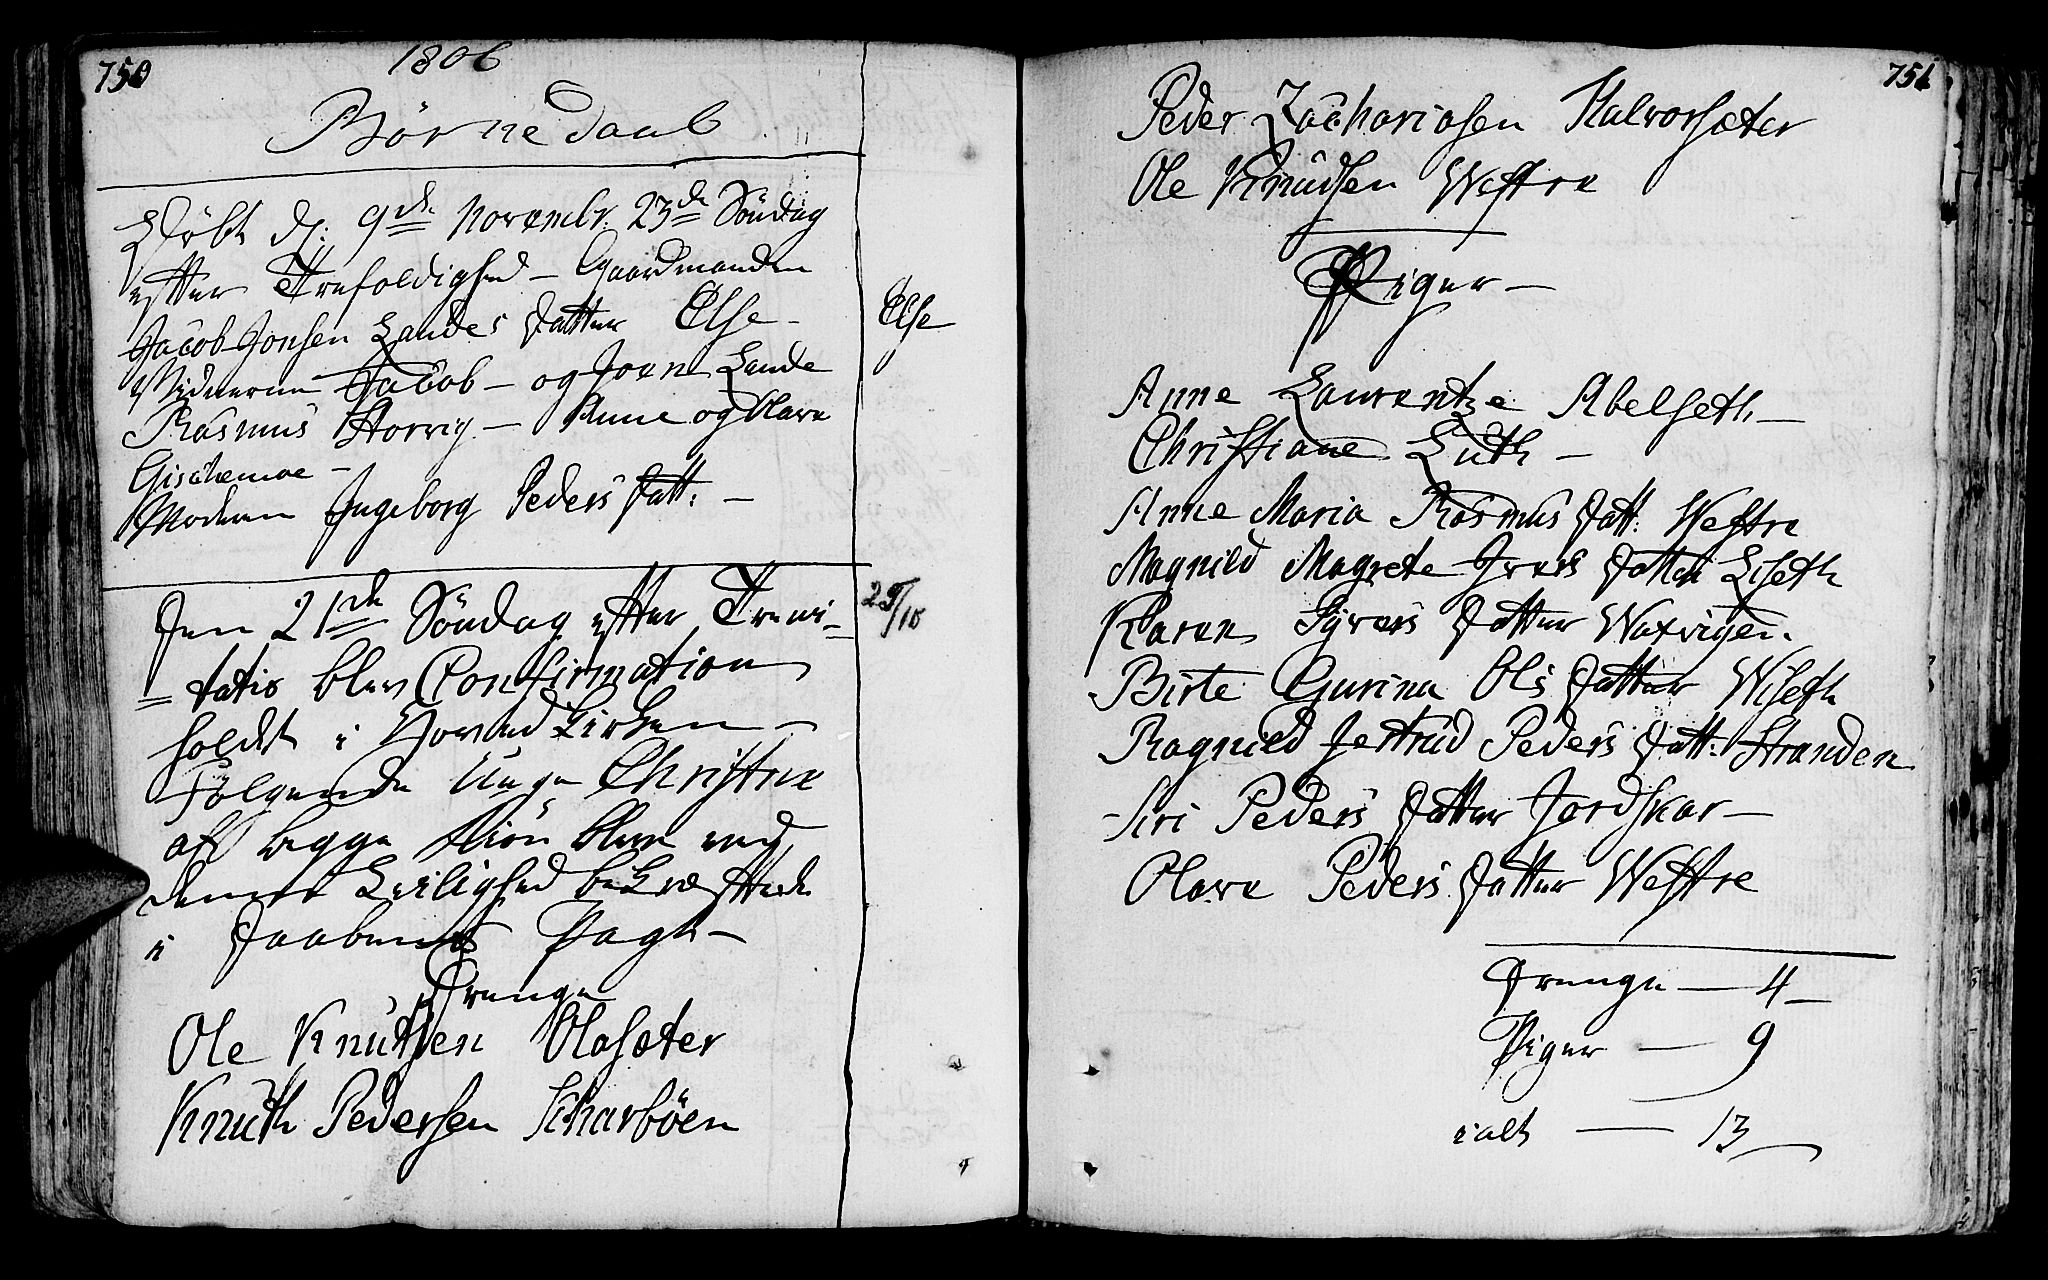 750
1806
Börnedaab
Döbt d: 9de Novembr. 23de Söndag
efter Trefoldighed – Gaardmanden
Jacob Jonsen Landes datter Else – Else
Vidnerne Jacob – og Joen Lande
Rasmus Horvig – Anne og Olave
Gischemoe –
Moderen Ingeborg Peders datt: –
Den 21de Söndag efter Treni= 25/10
=tatis blev Confirmation
holdet i Kirken –
Fölgende Unge Christne
af begge Kiön bleve ved
denne Leilighed bekræftede
i Daabens Pagt –
Drenge
Ole Knutsen Olasæter
Knuth Pedersen Scharböen
751
Peder Zachariasen Halvorsæter
Ole Knudsen Westre
Piger –
Anne Laurentze Abelseth –
Christiane Luth –
Anne Maria Rasmus datt: Westre
Magnild Magrete Ivers datter Liseth
Karen Syvers datter Waxvigen.
Birte Gurina Ols datter Wiseth
Ragnild Jertrud Peders datt: Stranden
Siri Peders datter Jordskar –
Olave Peders datter Westre
Drenge – 4 –
Piger – 9
ialt – 13